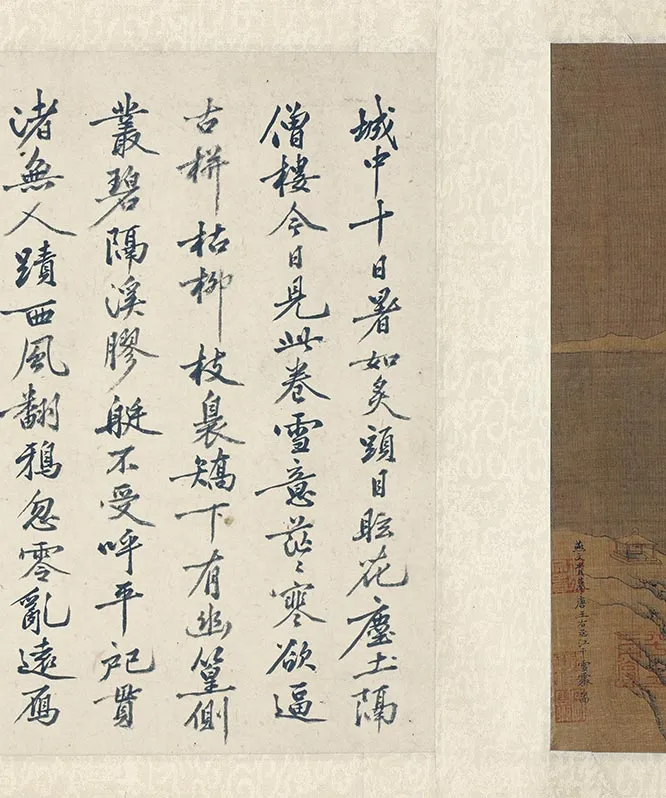 燕文貴摹唐王右丞江干雪霽
城中十日暑如炙頭目眩花塵土隔
僧樓今日見此卷雪意茫〻寒欲逼
古栟枯柳枝裊矯下有幽篁側
叢碧隔溪膠艇不受呼平貫
渚無人蹟西風翻鴉忽零亂遠雁